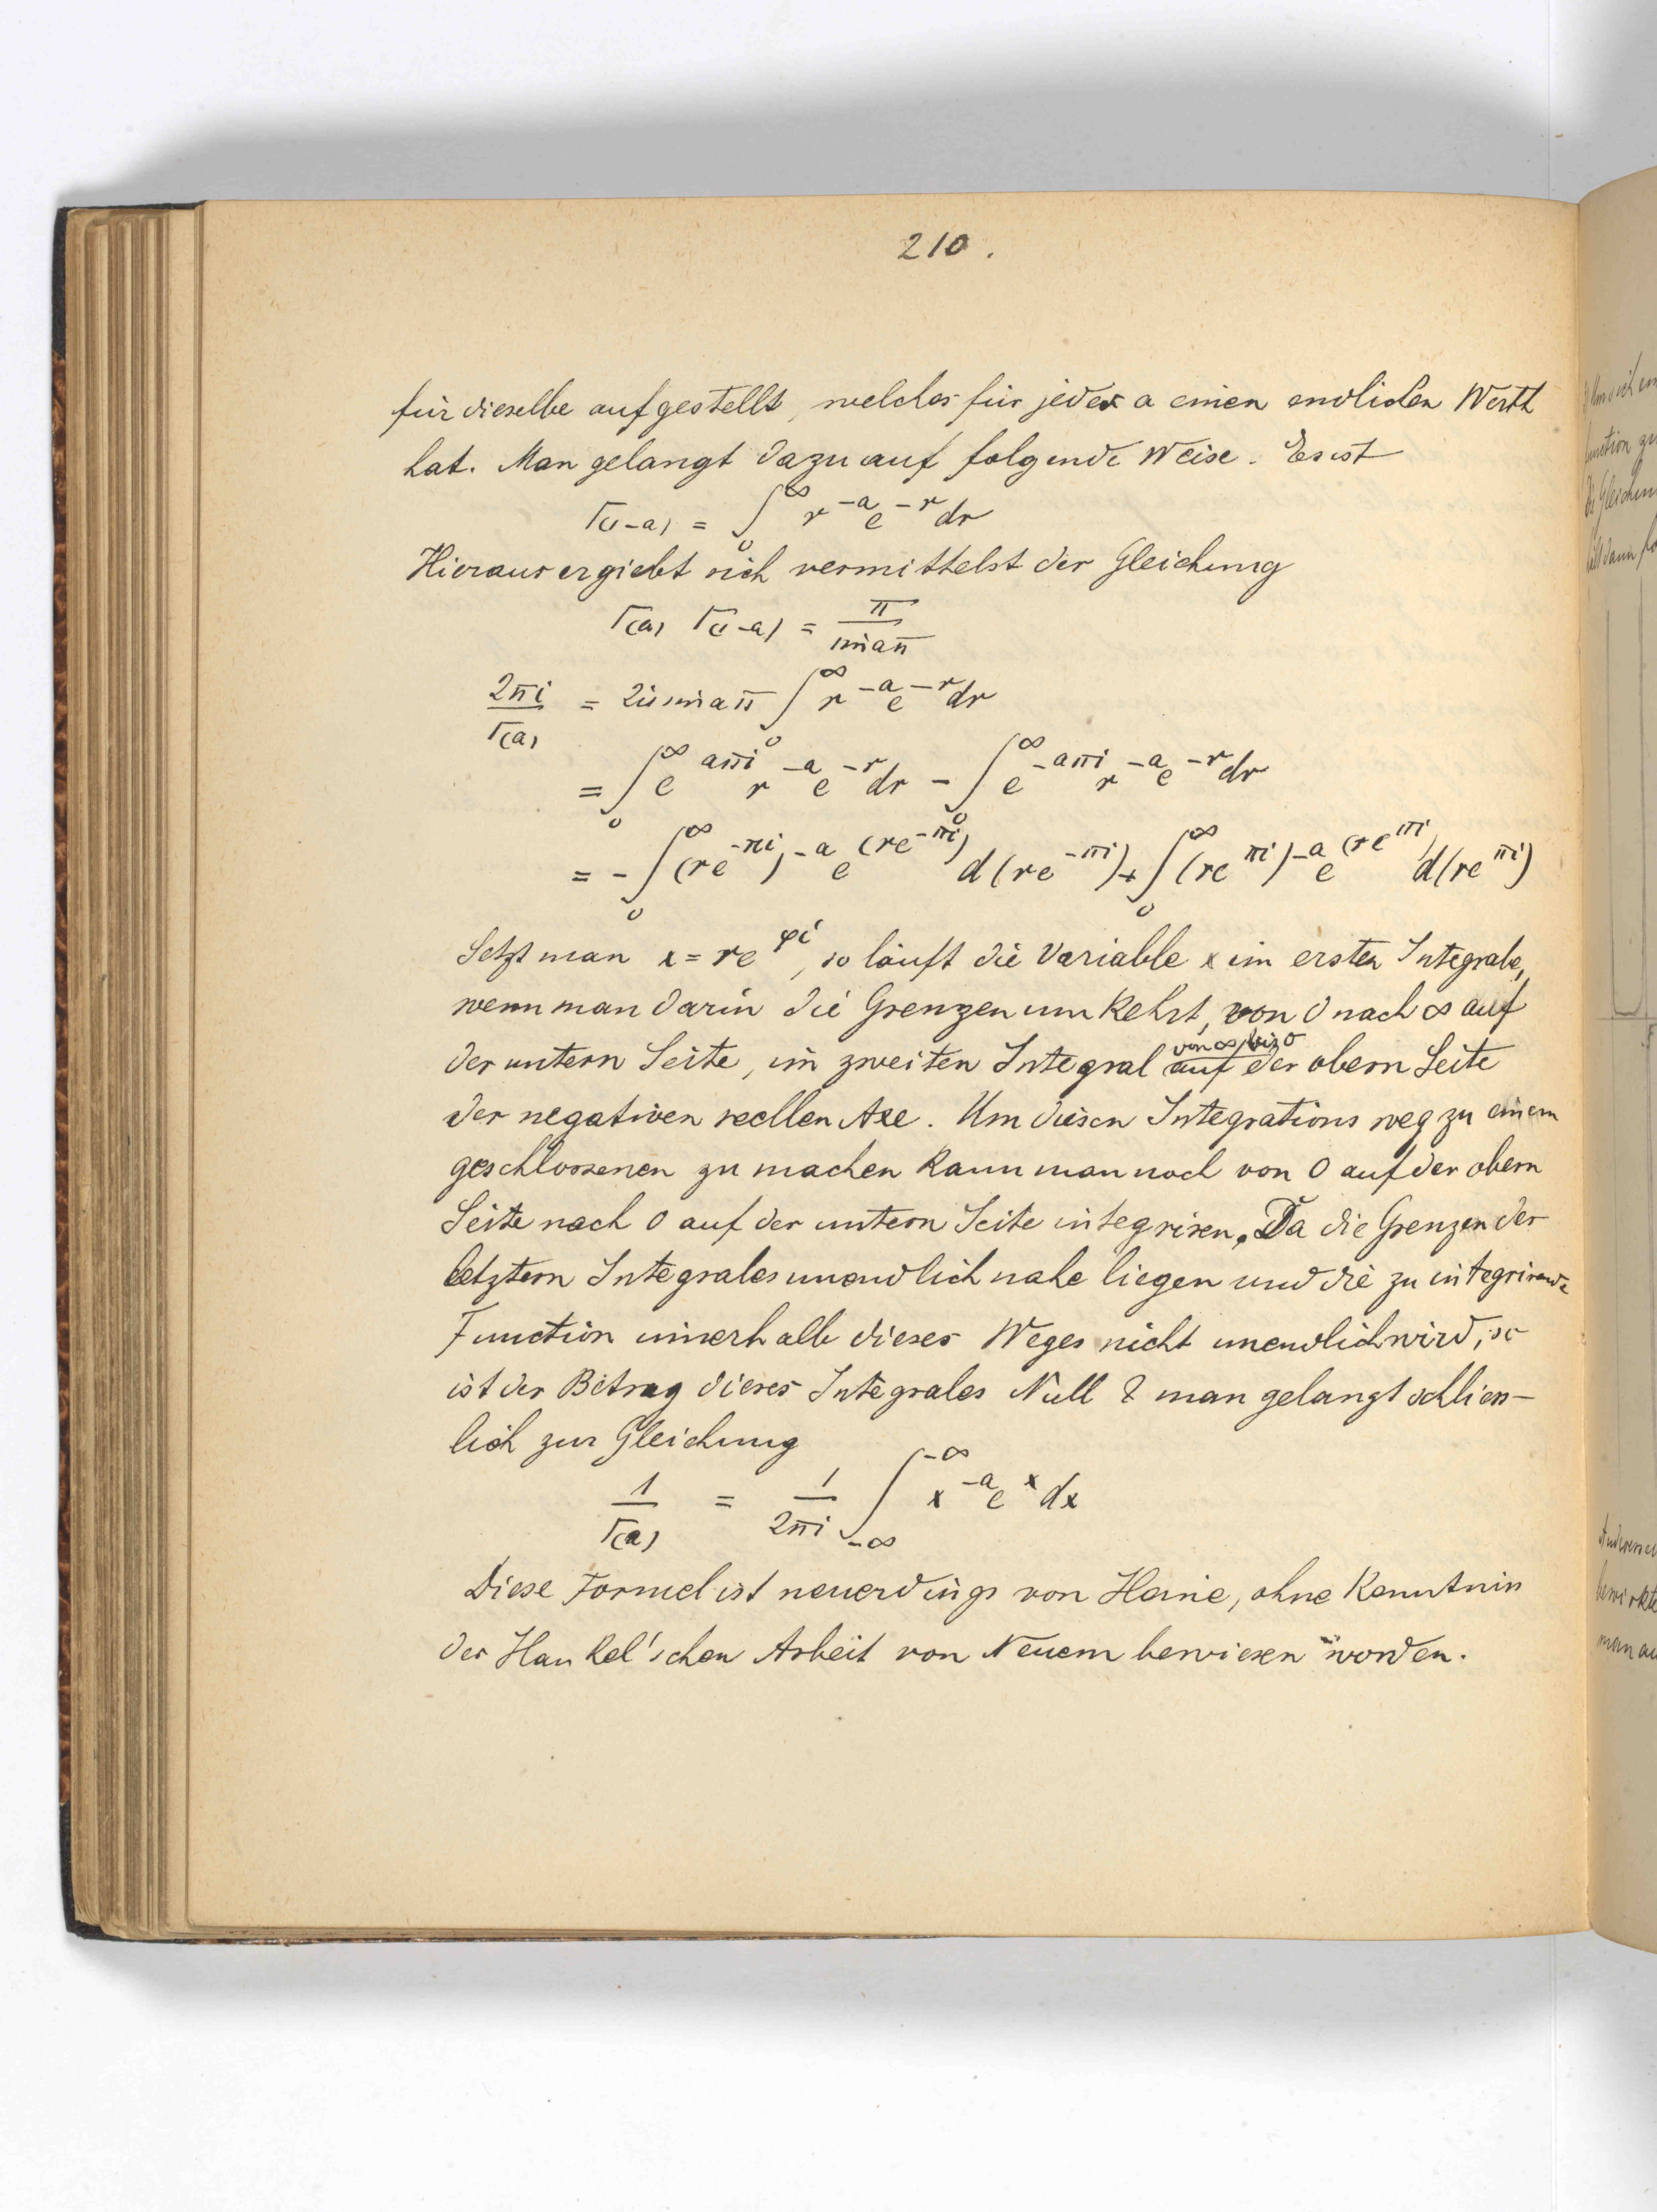 210.
für dieselbe aufgestellt, welches für jedes a einen endlichen Werth
hat. Man gelangt dazu auf folgende Weise. Es ist
Γ(1-a) = ∫₀^∞ r^{-a} e^{-r} dr
Hieraus ergiebt sich vermittelst der Gleichung
Γ(a) Γ(1-a) = π / sin aπ
2πi / Γ(a) = 2i sin aπ ∫₀^∞ r^{-a} e^{-r} dr
= ∫₀^∞ e^{aπi} r^{-a} e^{-r} dr - ∫₀^∞ e^{-aπi} r^{-a} e^{-r} dr
= - ∫₀^∞ (re^{-πi})^{-a} e^{(re^{-πi})} d(re^{-πi}) + ∫₀^∞ (re^{πi})^{-a} e^{(re^{πi})} d(re^{πi})
Setzt man x = re^{φi}, so läuft die Variable x im ersten Integrale,
wenn man darin die Grenzen umkehrt, von 0 nach ∞ auf
von ∞ bis 0
der untern Seite, im zweiten Integral auf der obern Seite
der negativen reellen Axe. Um diesen Integrationsweg zu einem
geschlossenen zu machen kann man noch von 0 auf der obern
Seite nach 0 auf der untern Seite integriren. Da die Grenzen der
letztern Integrales unendlich nahe liegen und die zu integrirende
Function innerhalb dieses Weges nicht unendlich wird, so
ist der Betrag dieses Integrales Null & man gelangt schliess-
lich zur Gleichung
1 / Γ(a) = 1 / 2πi ∫_{-∞}^{-∞} x^{-a} e^x dx
Diese Formel ist neuerdings von Heine, ohne Kenntniss
der Hankel'schen Arbeit von Neuem bewiesen worden.